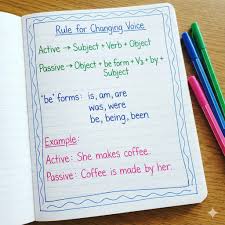 Rule for Changing Voice
Active → Subject + Verb + Object
Passive → Object + be form + V₃ + by +
Subject
'be' forms: is, am, are
was, were
be, being, been
Example:
Active: She makes coffee.
Passive: Coffee is made by her.